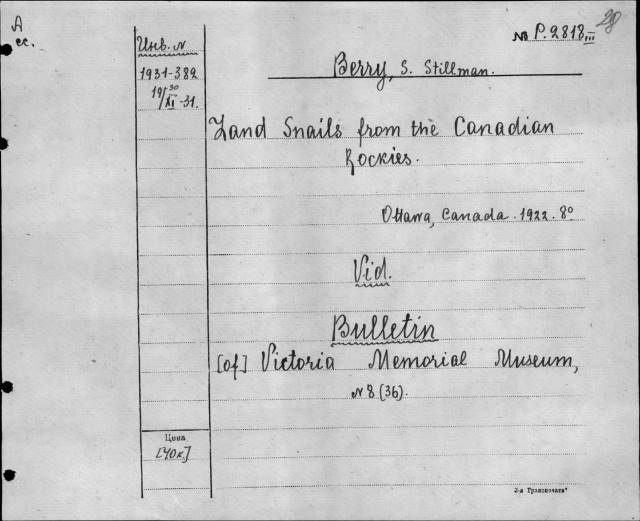 28
A
ec.
№ P.2818 III
Инв. №
1931-382
Berry, S. Stillman.
Land Snails from the Canadian
Rockies.
Ottawa, Canada. 1922. 8°
Vid.
Bulletin
[of] Victoria Memorial Museum,
№ 8 (36).
Цена
[40к.]
3-я Транспечать